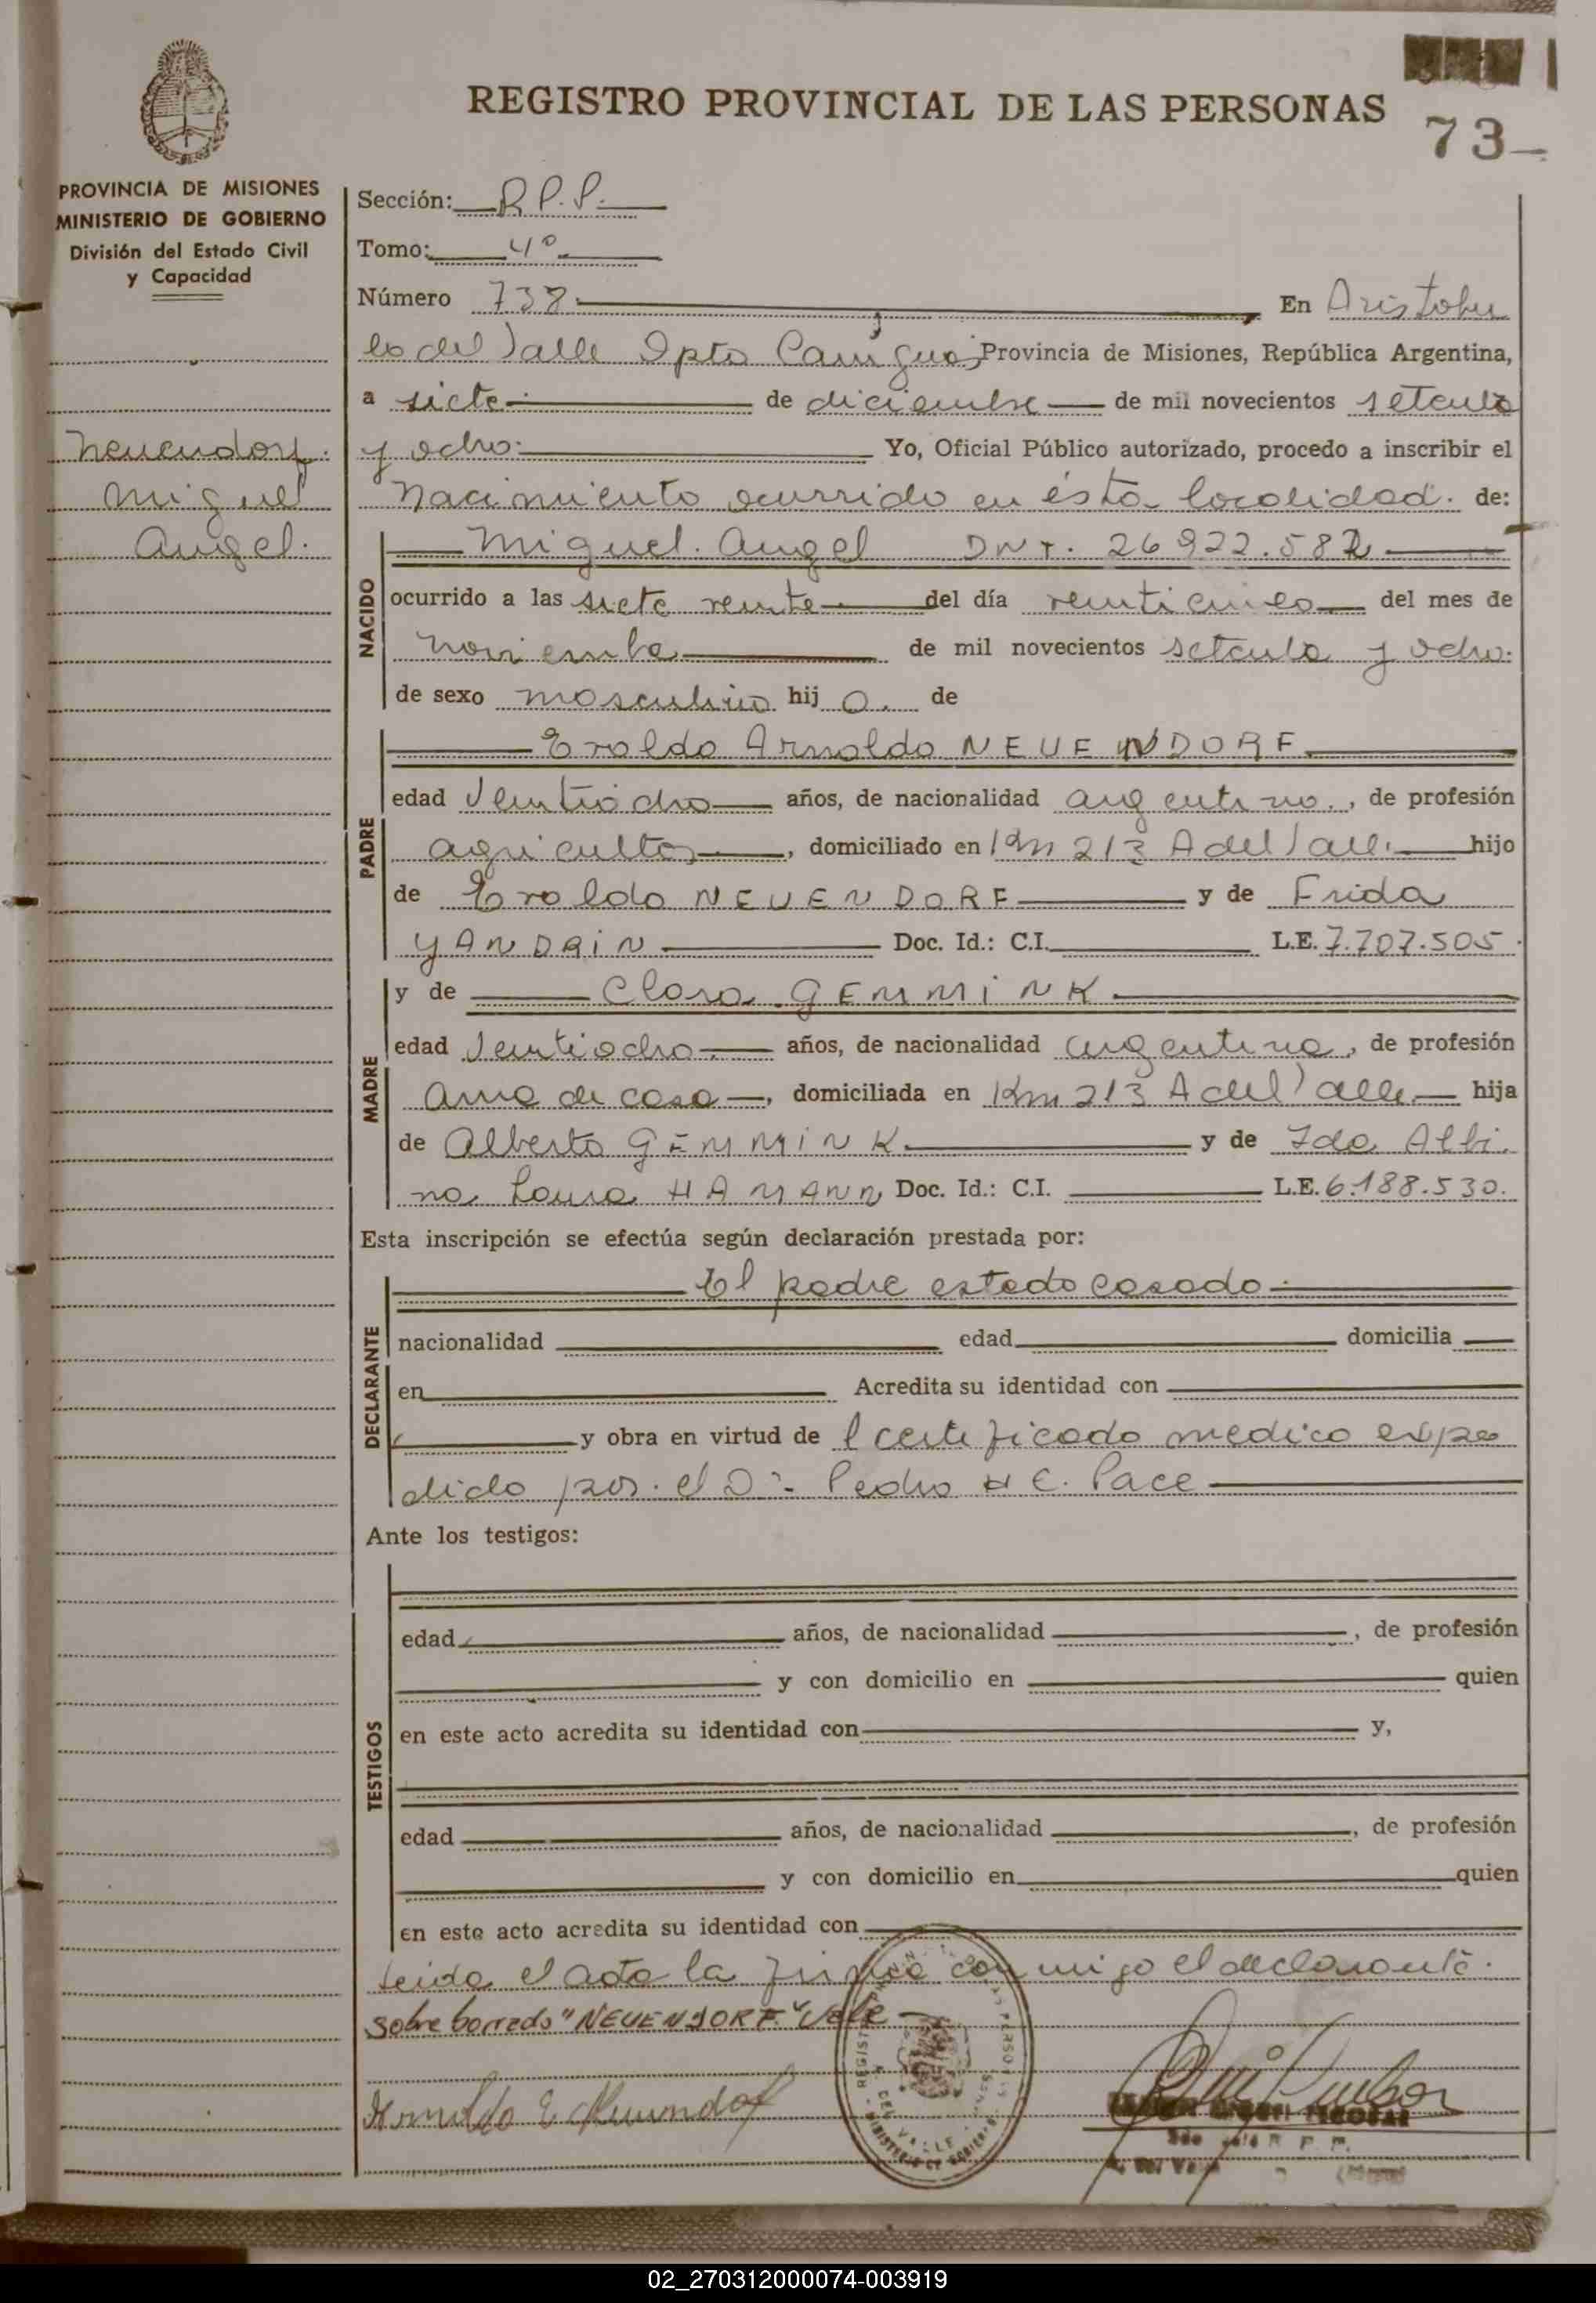 REGISTRO PROVINCIAL DE LAS PERSONAS
73
PROVINCIA DE MISIONES
MINISTERIO DE GOBIERNO
División del Estado Civil
y Capacidad
Neuendorf
Miguel
Angel.
Sección: R.P.P.
Tomo: 4º
Número 738 En Aristobu
lo del Valle Dpto Cainguas Provincia de Misiones, República Argentina,
a siete de diciembre de mil novecientos setenta
y ocho. Yo, Oficial Público autorizado, procedo a inscribir el
Nacimiento ocurrido en ésta localidad. de:
NACIDO
Miguel. Angel DNI. 26922.582
ocurrido a las siete veinte del día veinticinco del mes de
noviembre de mil novecientos setenta y ocho.
de sexo masculino hij o. de
PADRE
Eroldo Arnoldo NEUENDORF
edad Veintiocho años, de nacionalidad argentino., de profesión
agricultor, domiciliado en Km 213 A del Valle. hijo
de Eroldo NEUENDORF y de Frida
YANDRIN Doc. Id.: C.I. L.E. 7.707.505.
MADRE
y de Clara GEMMINK
edad Veintiocho. años, de nacionalidad argentina, de profesión
Ama de casa, domiciliada en Km 213 A del Valle. hija
de Alberto GEMMINK y de Ida Albi.
na Laura HAMANN Doc. Id.: C.I. L.E. 6.188.530.
Esta inscripción se efectúa según declaración prestada por:
DECLARANTE
El padre estado casado
nacionalidad edad domicilia
en Acredita su identidad con
y obra en virtud de l certificado medico expe
dido por. el Dr. Pedro H C. Pace
Ante los testigos:
TESTIGOS
edad años, de nacionalidad , de profesión
y con domicilio en quien
en este acto acredita su identidad con y,
edad años, de nacionalidad , de profesión
y con domicilio en quien
en este acto acredita su identidad con
Leida el acta la firma conmigo el declarante.
Sobre borrado "NEUENDORF" Vale
02_270312000074-003919